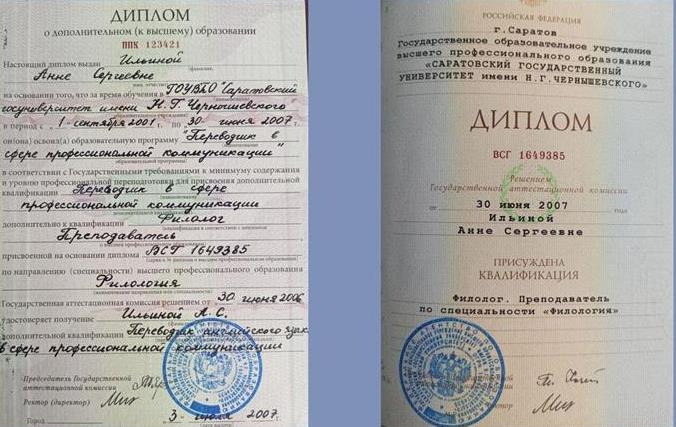 ДИПЛОМ
о дополнительном (к высшему) образовании
ППК 123421
Настоящий диплом выдан Ильиной
Анне Сергеевне
на основании того, что за время обучения в ГОУВПО "Саратовский
госуниверситет имени Н.Г. Чернышевского"
в период с „1" сентября 2001 г. по „30" июня 2007 г.
он(она) освоил(а) образовательную программу "Переводчик в
сфере профессиональной коммуникации"
образовательной программы
в соответствии с Государственными требованиями к минимуму содержания
и уровню профессиональной подготовки для присвоения дополнительной
квалификации "Переводчик в сфере
профессиональной коммуникации
дополнительно к квалификации Филолог
Преподаватель
присвоенной на основании диплома ВСГ 1649385
по направлению (специальности) высшего профессионального образования
Филология
Государственная аттестационная комиссия решением от 30 июня 2006
удостоверяет получение Ильиной А.С.
дополнительной квалификации Переводчик английского язык
в сфере профессиональной коммуникации
Председатель Государственной
аттестационной комиссии
Ректор (директор)
Город 3 июля 2007 г.
РОССИЙСКАЯ ФЕДЕРАЦИЯ
г.Саратов
Государственное образовательное учреждение
высшего профессионального образования
«САРАТОВСКИЙ ГОСУДАРСТВЕННЫЙ
УНИВЕРСИТЕТ имени Н.Г.ЧЕРНЫШЕВСКОГО»
ДИПЛОМ
ВСГ 1649385
Решением
Государственной аттестационной комиссии
от 30 июня 2007 года
Ильиной
Анне Сергеевне
ПРИСУЖДЕНА
КВАЛИФИКАЦИЯ
Филолог. Преподаватель
по специальности «Филология»
аттестационной комиссии
Ректор